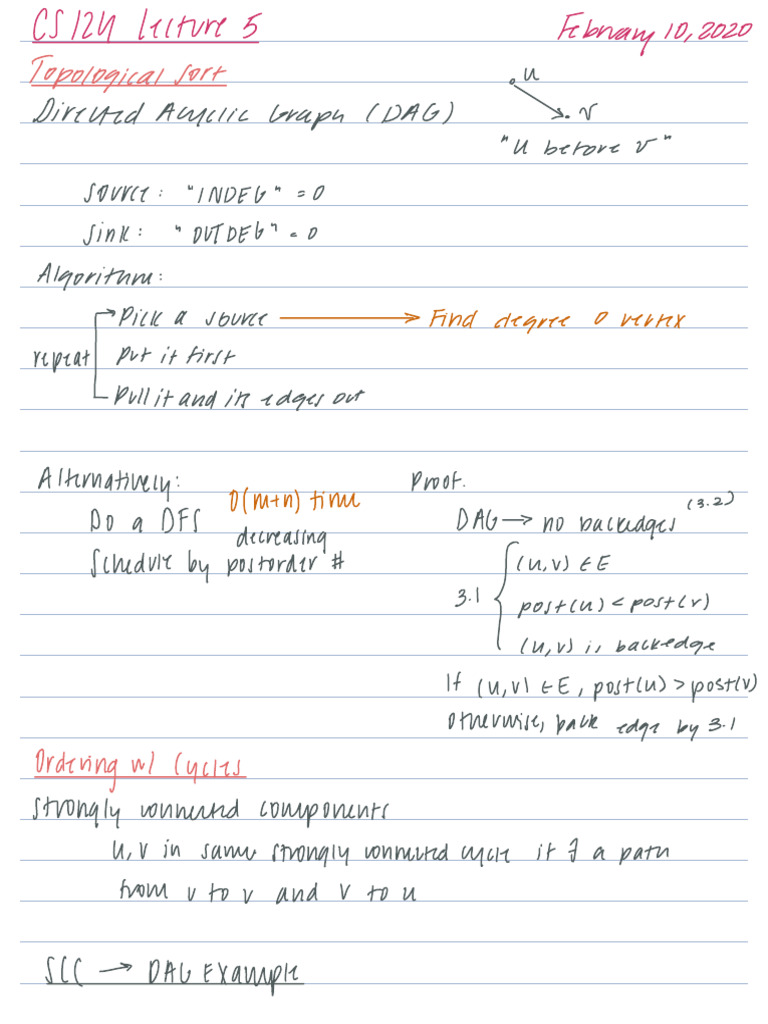 CS124 Lecture 5
February 10, 2020
Topological Sort
Directed Acyclic Graph (DAG)
u
v
"u before v"
source: "INDEG" = 0
sink: "OUTDEG" = 0
Algorithm:
repeat
Pick a source → Find degree 0 vertex
Put it first
Pull it and its edges out
Alternatively:
Do a DFS O(m+n) time
Schedule by decreasing postorder #
Proof.
DAG → no backedges (3.2)
3.1
(u,v) ∈ E
post(u) < post(v)
(u,v) is backedge
If (u,v) ∈ E, post(u) > post(v)
otherwise, back edge by 3.1
Ordering w/ Cycles
strongly connected components
u,v in same strongly connected cycle if ∃ a path
from v to v and v to u
SCC → DAG Example